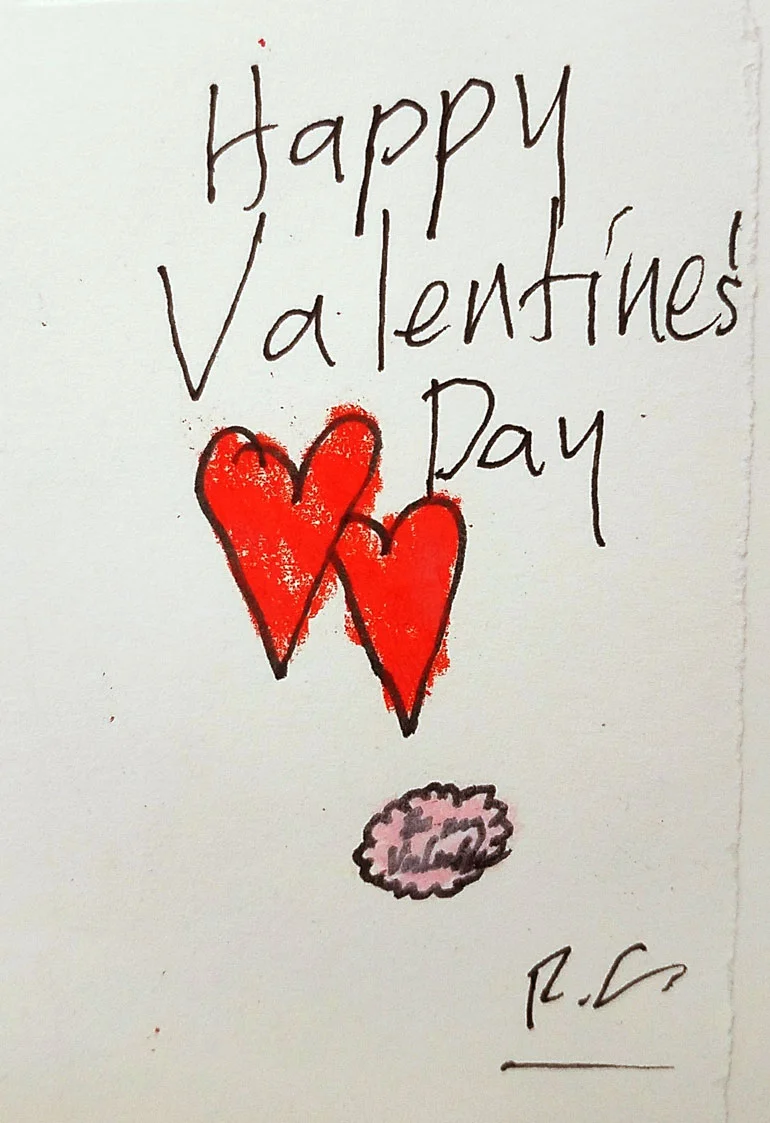 Happy
Valentine's
Day
Be my
Valentine
R.G